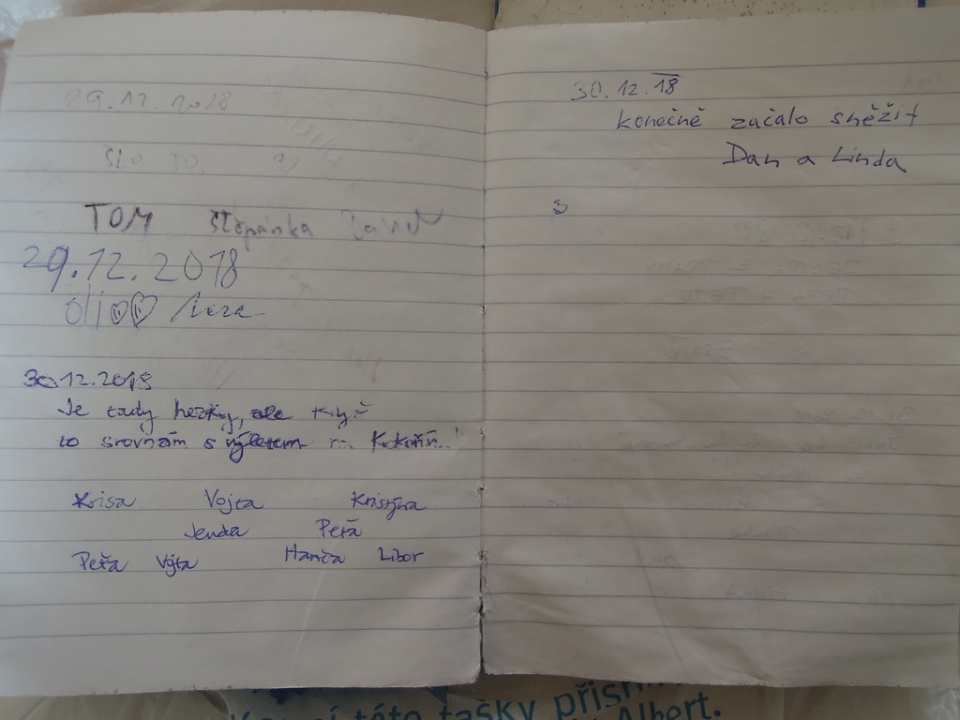 29.12.2018
TOM Štěpánka
29.12.2018
30.12.2018
Je tady hezky, ale když
to srovnám s výletem na Kokořín..."
Krisa Vojta Kristýna
Jenda Peťa
Peťa Vojta Hanča Libor
30.12.18
konečně začalo sněžit
Dan a Linda
3
této tašky
Albert.